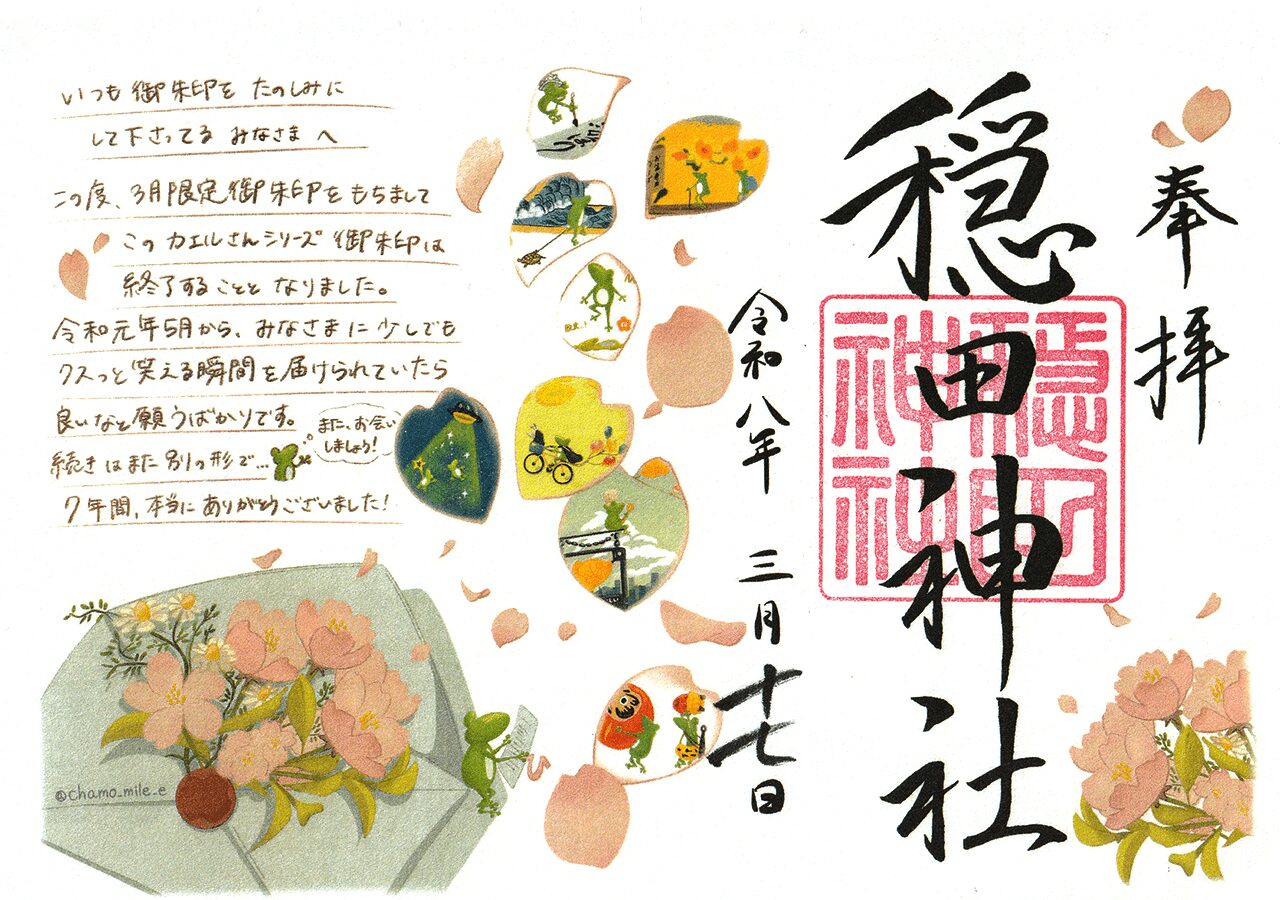 奉拝
穏田神社
穏田神社
令和八年 三月十七日
いつも御朱印を たのしみに
して下さってる みなさま へ
この度、3月限定御朱印をもちまして
このカエルさんシリーズ御朱印は
終了することと なりました。
令和元年5月から、みなさまに少しでも
クスっと笑える瞬間を届けられていたら
良いなと願うばかりです。
続きはまた別の形で…
また、お会い
しましょう!
7年間、本当にありがとうございました!
@chamo_mile_e